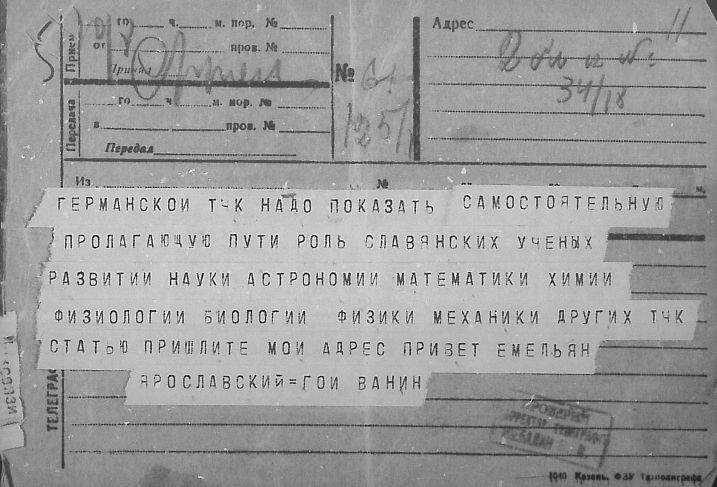 го ч. м. пор. № Адрес 11
Прием от пров. №
Принял
№
34/18
го ч. м. пор. №
125/
Передача в пров. №
Передал
Из № м.
ГЕРМАНСКОИ ТЧК НАДО ПОКАЗАТЬ САМОСТОЯТЕЛЬНУЮ
ПРОЛАГАЮЩУЮ ПУТИ РОЛЬ СЛАВЯНСКИХ УЧЕНЫХ
РАЗВИТИИ НАУКИ АСТРОНОМИИ МАТЕМАТИКИ ХИМИИ
ФИЗИОЛОГИИ БИОЛОГИИ ФИЗИКИ МЕХАНИКИ ДРУГИХ ТЧК
СТАТЬЮ ПРИШЛИТЕ МОИ АДРЕС ПРИВЕТ ЕМЕЛЬЯН
ЯРОСЛАВСКИЙ=ГОИ ВАНИН
ТЕЛЕГРА
1040 Казань, ФЗУ Татполиграфа